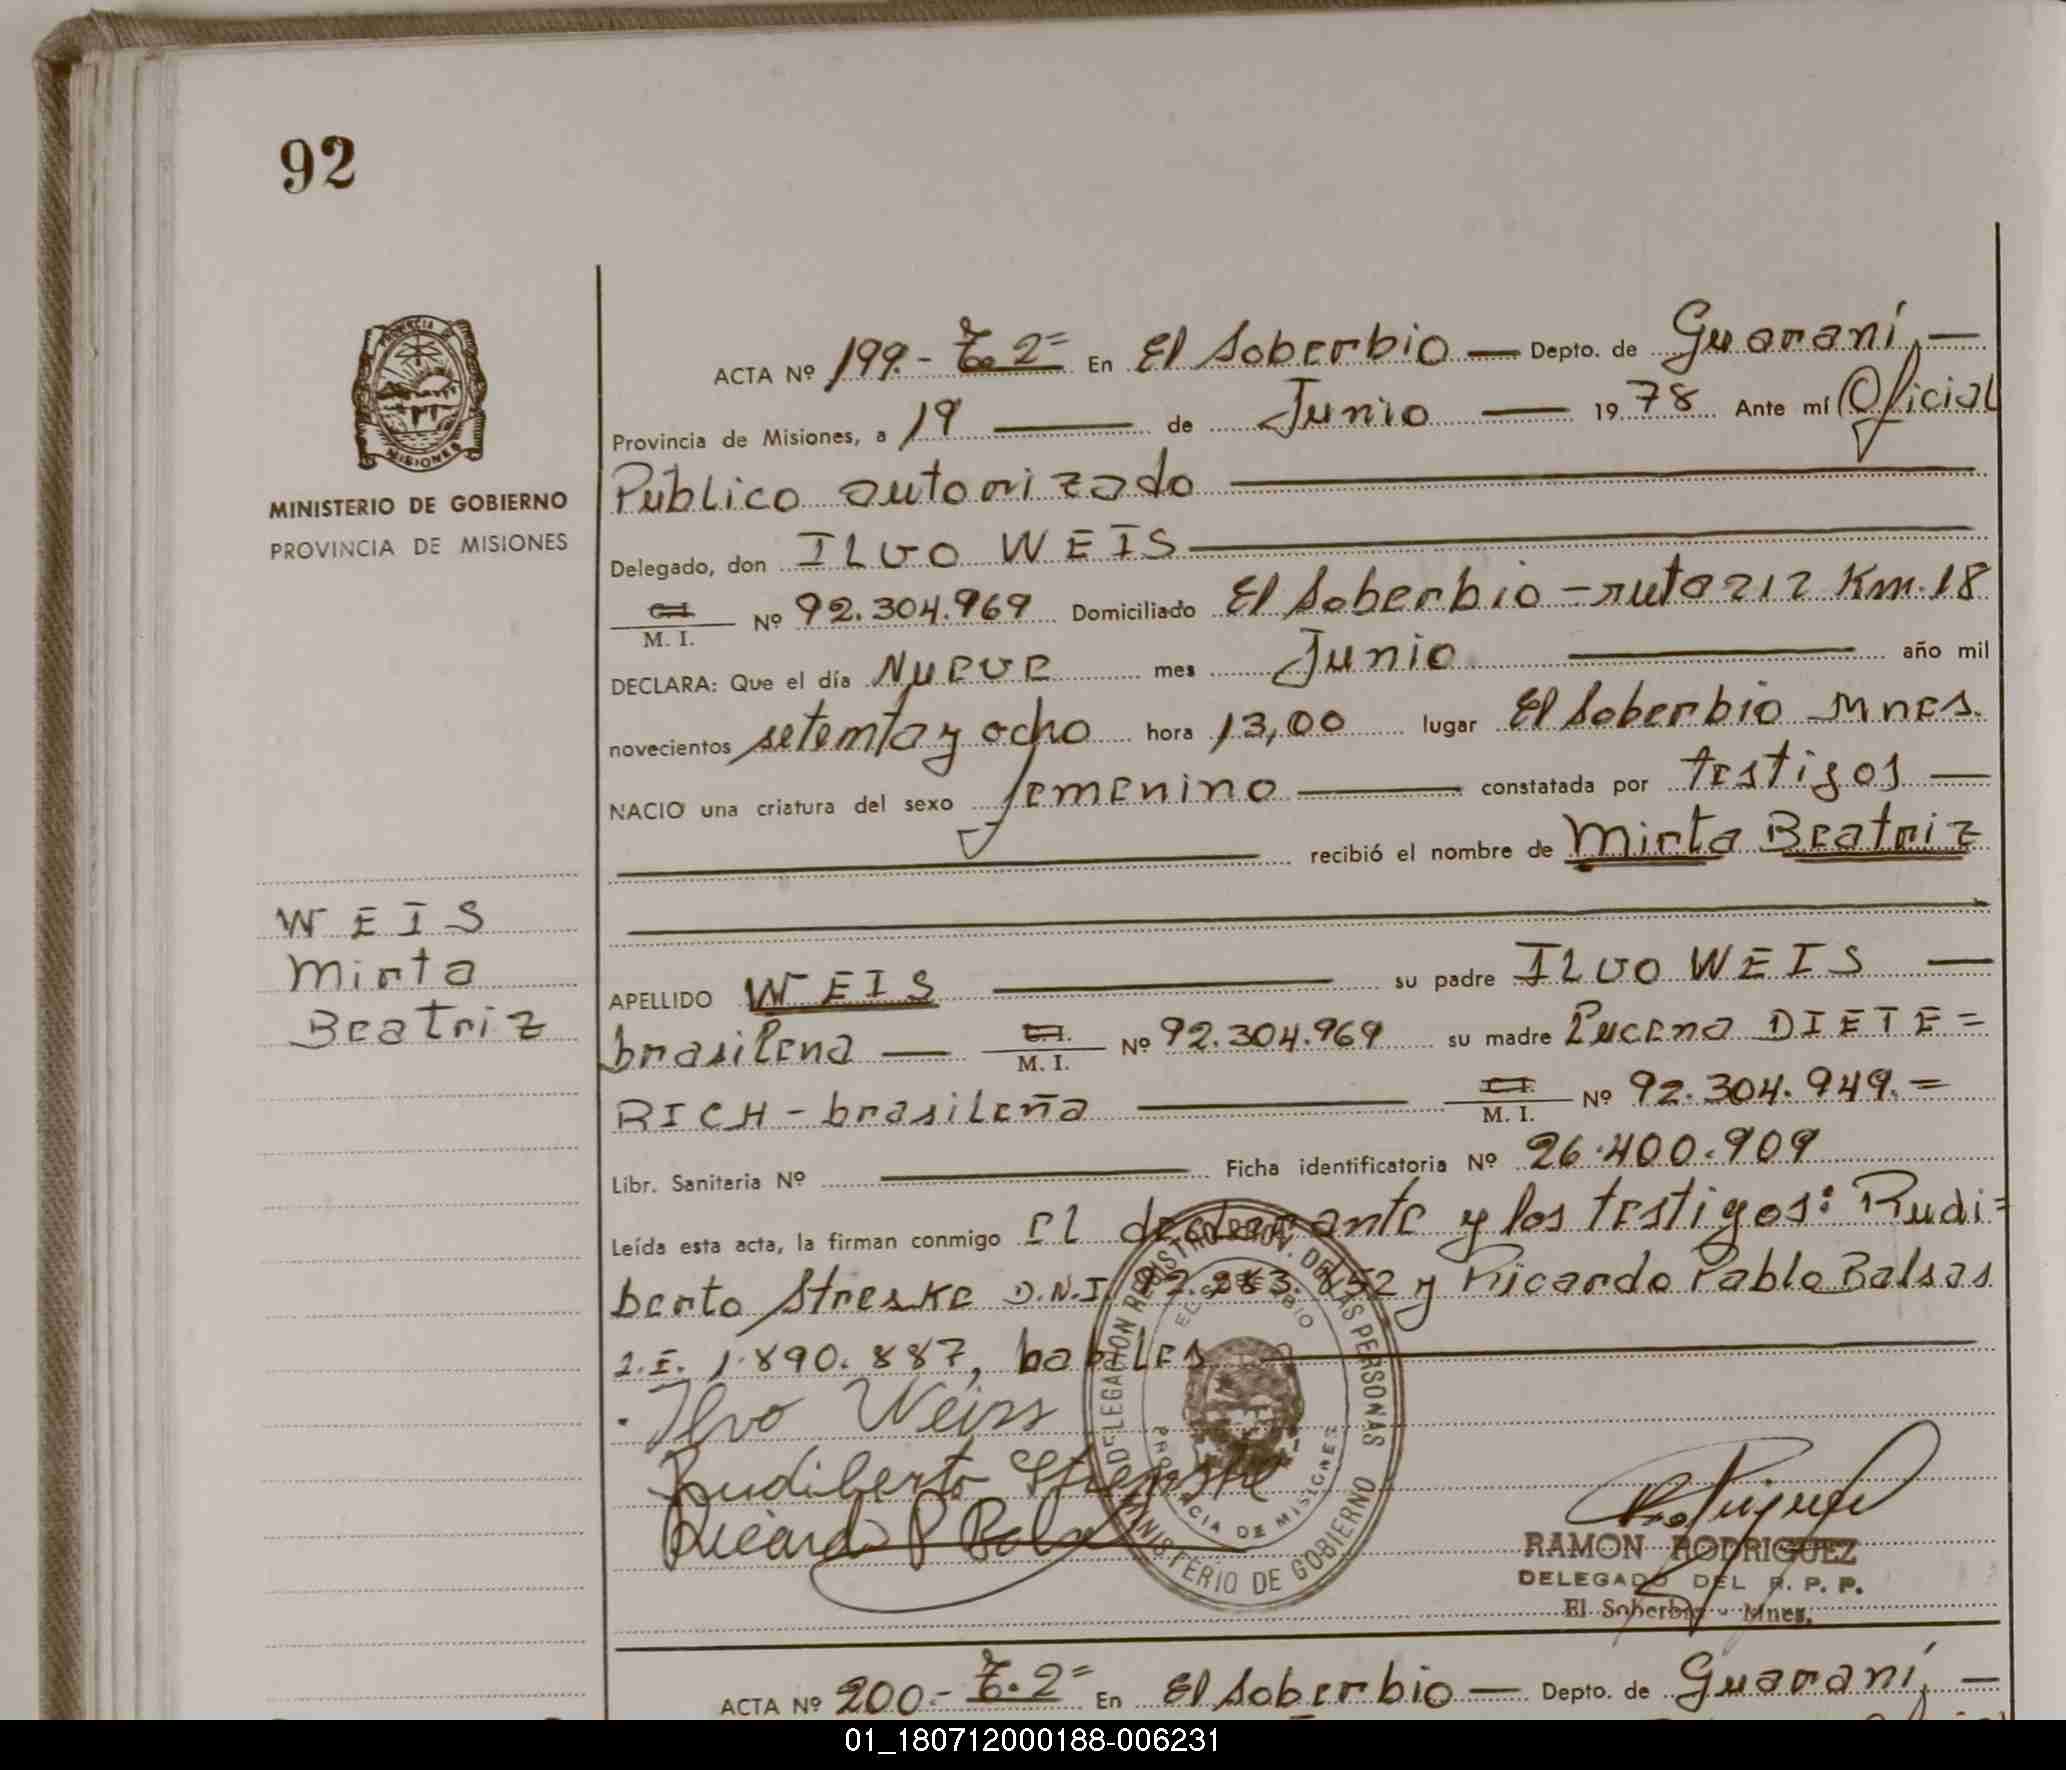 92
MINISTERIO DE GOBIERNO
PROVINCIA DE MISIONES
WEIS
Mirta
Beatriz
ACTA Nº 199.- To. 2= En El Soberbio — Depto. de Guaraní, —
Provincia de Misiones, a 19 — de Junio — 1978 Ante mí Oficial
Público autorizado
Delegado, don ILVO WEIS
C.I. M. I. Nº 92.304.969 Domiciliado El Soberbio - ruta 212 Km. 18
DECLARA: Que el día Nueve mes Junio — año mil
novecientos setenta y ocho hora 13,00 lugar El Soberbio Mnes.
NACIO una criatura del sexo femenino — constatada por testigos —
recibió el nombre de Mirta Beatriz
APELLIDO WEIS — su padre ILVO WEIS —
brasilena — C.I. M. I. Nº 92.304.969 su madre Lucena DIETE=
RICH - brasileña — C.I. M. I. Nº 92.304.949.=
Libr. Sanitaria Nº — Ficha identificatoria Nº 26.400.909
Leída esta acta, la firman conmigo el declarante y los testigos: Rudi=
berto Streske D.N.I. y Ricardo Pablo Balsas
1.890.887, habiles
Ilvo Weiss
Rudiberto
Ricardo P
DELEGACION REGISTRO PROV. DE LAS PERSONAS
EL SOBERBIO
PROVINCIA DE MISIONES
MINISTERIO DE GOBIERNO
RAMON RODRIGUEZ
DELEGADO DEL R. P. P.
El Soberbio - Mnes.
ACTA Nº 200.- To. 2= En El Soberbio — Depto. de Guaraní, —
01_180712000188-006231